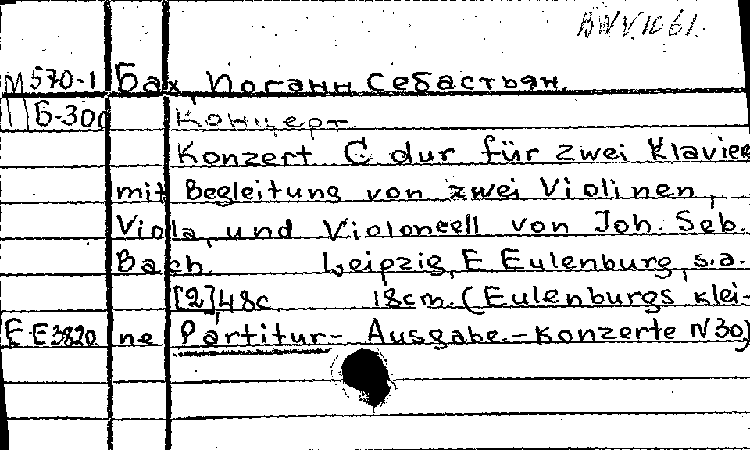 BWV 1061.
М570-1 Бах, Иоганн Себастьян.
Б-300 Концерт
Konzert C dur für zwei Klavier
mit Begleitung von zwei Violinen,
Viola, und Violoncell von Joh. Seb.
Bach. Leipzig, E Eulenburg, s.a.
[2]48c 18cm. (Eulenburgs klei-
E-E3820 ne Partitur-Ausgabe.-Konzerte N30)